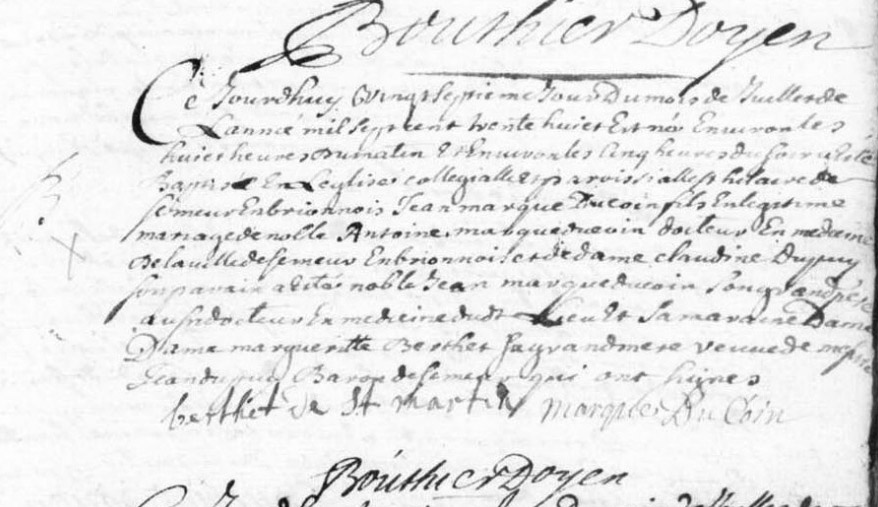 Bouthier Doyen
Ce Jourdhuy vingt septieme Jour Du mois de Juillet de
Lanneé mil sept cent trente huict Est né Environ les
huict heures Du matin Et Environ les cinq heures du soir a esté
Baptisé En Leglise collegialle et parroissialle st hilaire de
semeur En brionnois Jean marque Ducoin fils En legitime
mariage de noble Antoine marque ducoin docteur En medecine
De la ville de semeur En brionnois et de dame claudine Dupuy
son parain a esté noble Jean marque ducoin son grand pere
aussy docteur En medecine dudt Lieu Et sa maraine Dame
Dame margueritte Berthet sa grand mere veuve de messire
Jean dupuy Baron de semeur qui ont signes
berthet de St martin marques Du Coin
Bouthier Doyen